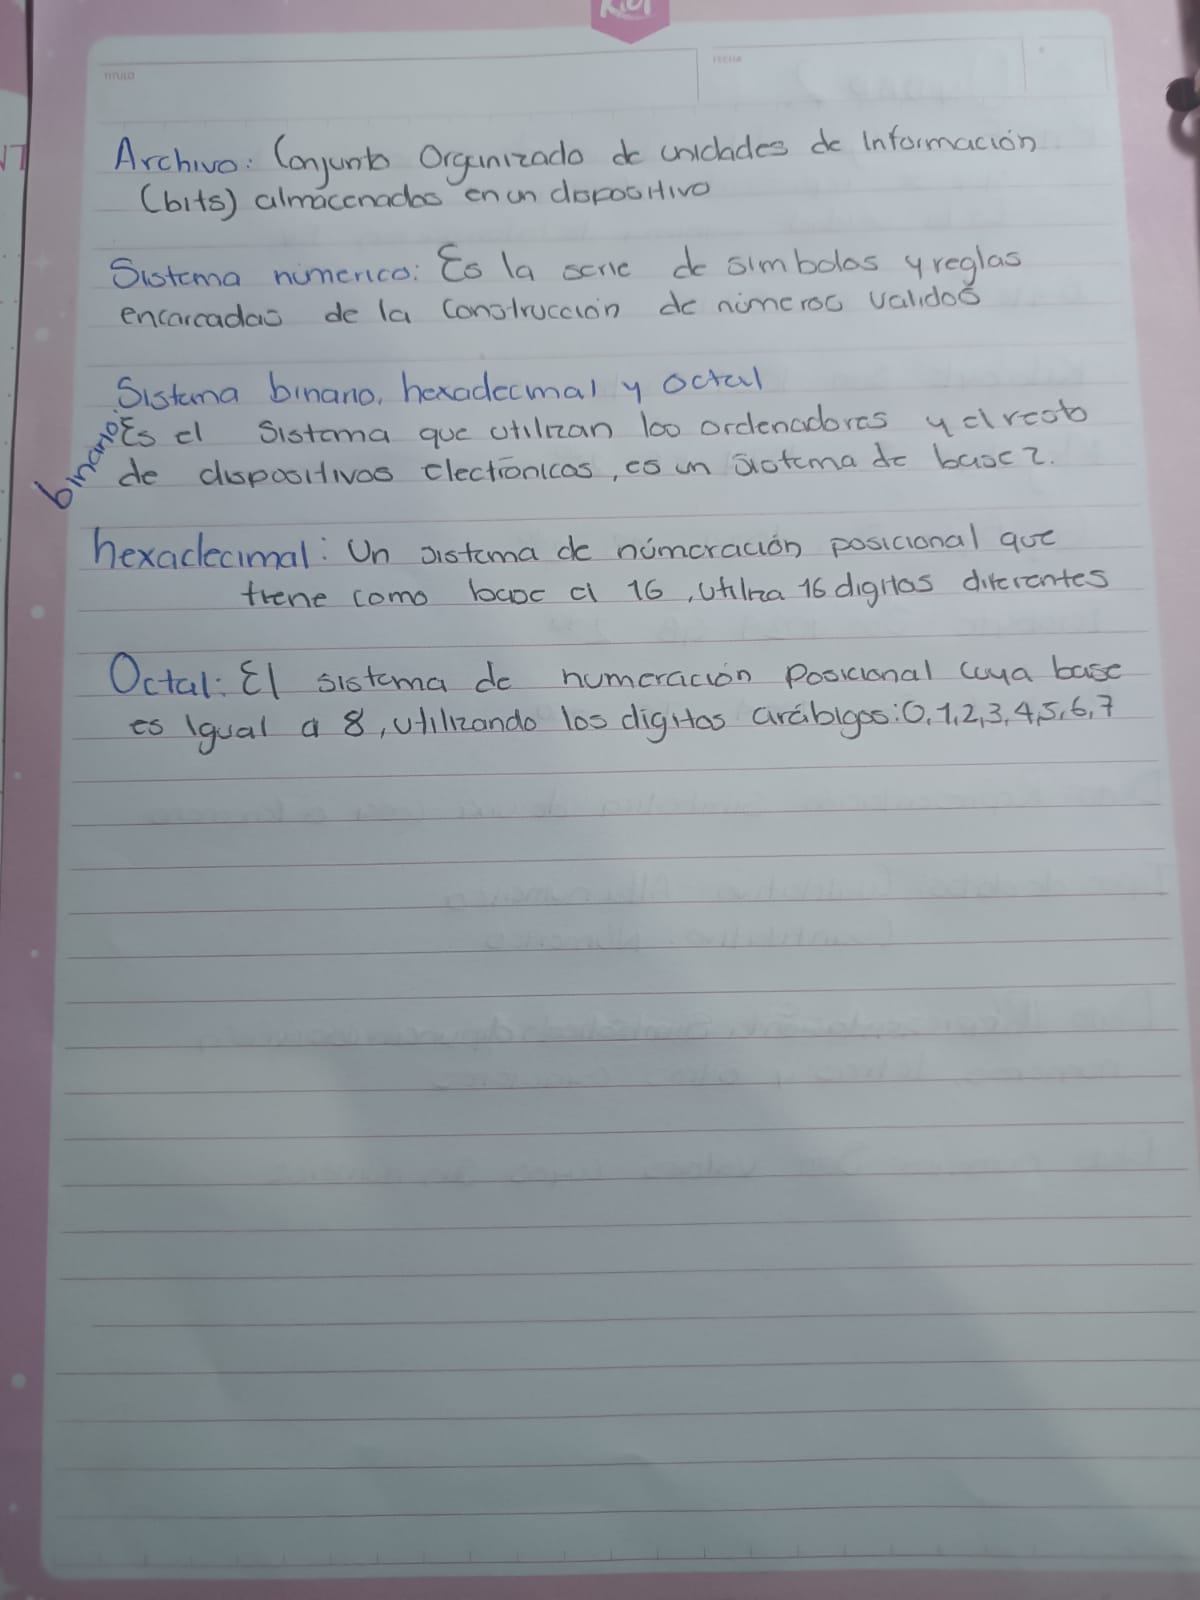 Kiut
TITULO
FECHA
Archivo: Conjunto Organizado de unidades de Información
(bits) almacenados en un dispositivo
Sistema númerico: Es la serie de simbolos y reglas
encarcadas de la construcción de números validos
Sistema binario, hexadecimal y octal
binario: Es el sistema que utilizan los ordenadores y el resto
de dispositivos electrónicos, es un sistema de base 2.
hexadecimal: Un sistema de númeración posicional que
tiene como base el 16, utiliza 16 digitos diferentes
Octal: El sistema de numeración Posicional cuya base
es Igual a 8, utilizando los digitos arábigos: 0,1,2,3,4,5,6,7